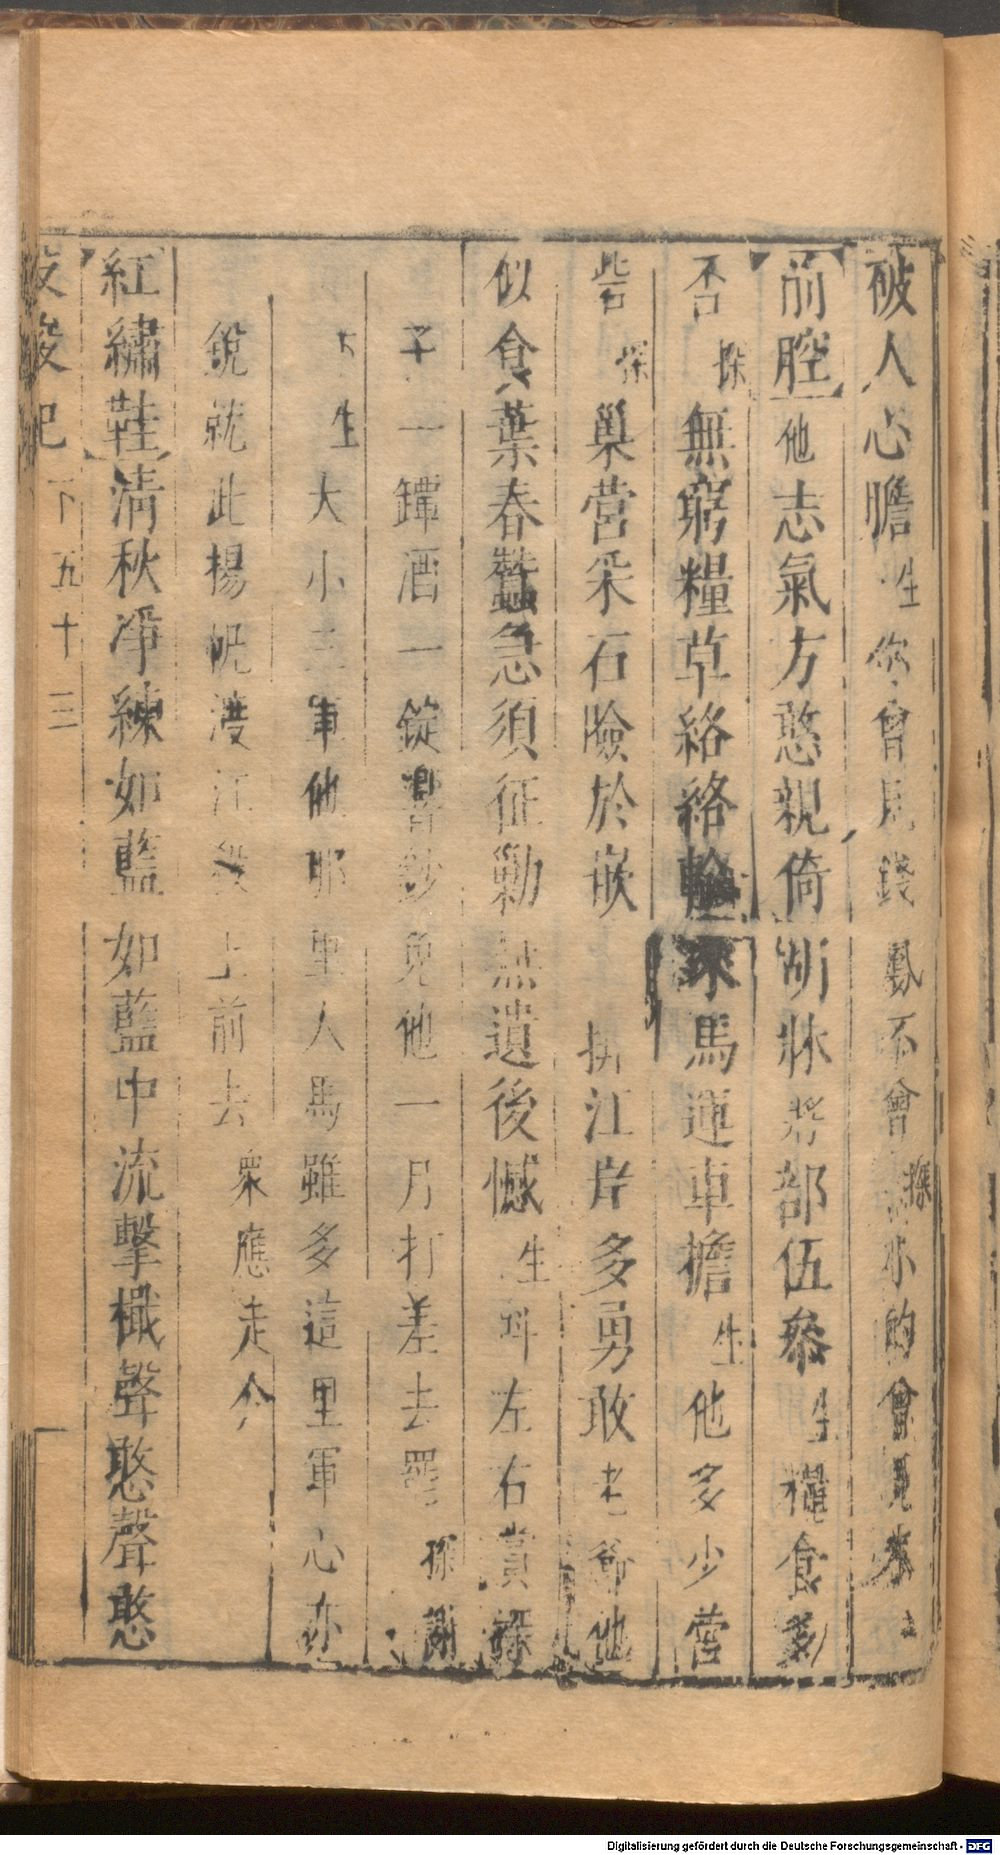 被人心膽生你曾見錢鳳不曾探小的曾見來
前腔他志氣方憨親倚胡牀將部伍參生糧食多
否探無窮糧草絡絡輪琛馬運車擔生他多少營
砦探巢營采石險於嵌扼江岸多勇敢老爺他
似食葉春蠶急須征勦無遺後憾生叫左右賞探
子一罈酒一錠鈔免他一月打差去罷探謝
下生大小三軍他那里人馬雖多這里軍心亦
銳就此楊帆渡江殺上前去衆應走介
紅繡鞋清秋淨練如藍如藍中流擊檝聲憨聲憨
投梭記下五十三
Digitalisierung gefördert durch die Deutsche Forschungsgemeinschaft - DFG